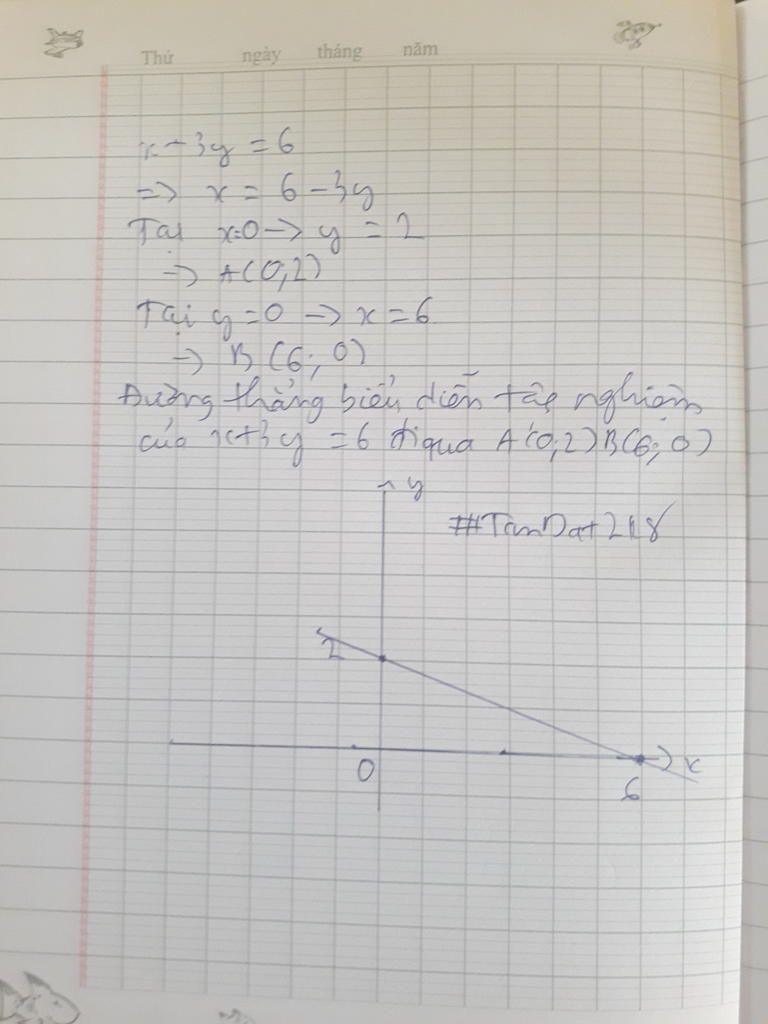 Thứ ngày tháng năm
x+3y = 6
=> x = 6 - 3y
Tại x=0 -> y = 2
-> A(0,2)
Tại y = 0 -> x = 6
-> B (6; 0)
Đường thẳng biểu diễn tập nghiệm
của x+3y = 6 đi qua A(0;2) B(6; 0)
y
#TanDat218
2
0
x
6